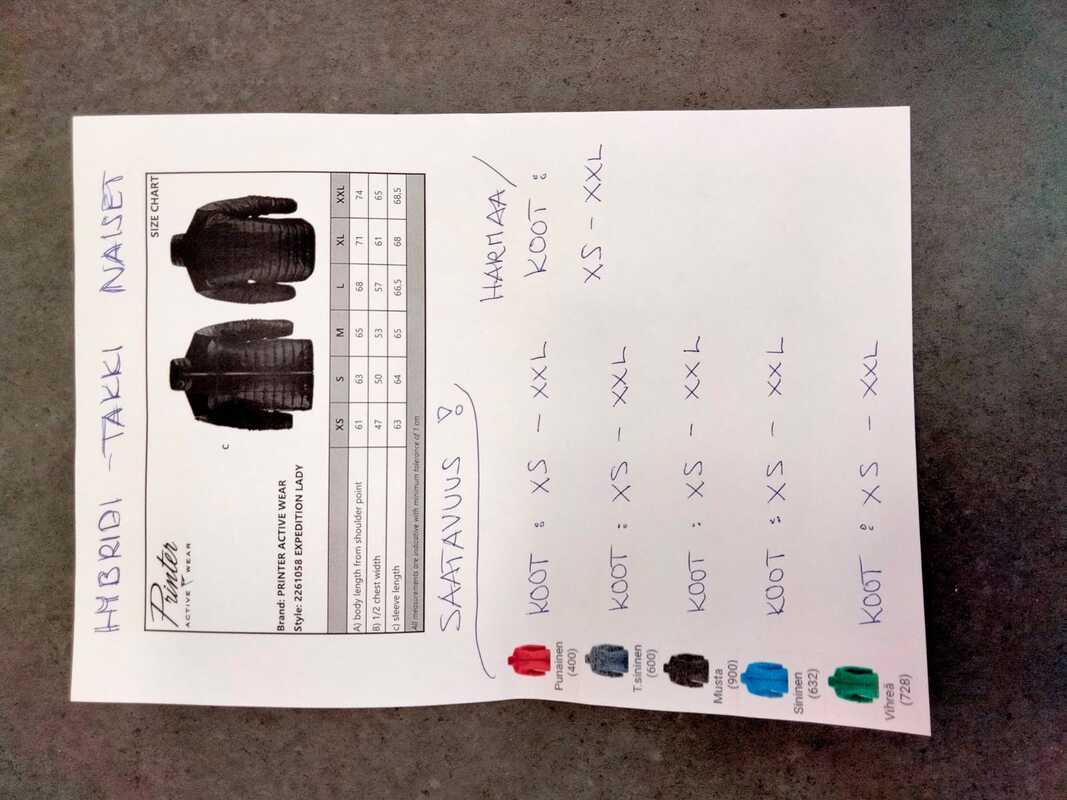 HYBRIDI - TAKKI NAISET
Printer
ACTIVE WEAR
SIZE CHART
C
Brand: PRINTER ACTIVE WEAR
Style: 2261058 EXPEDITION LADY
XS S M L XL XXL
A) body length from shoulder point 61 63 65 68 71 74
B) 1/2 chest width 47 50 53 57 61 65
c) sleeve length 63 64 65 66,5 68 68,5
All measurements are indicative with minimum tolerance of 1 cm
SAATAVUUS !
HARMAA/
KOOT :
XS - XXL
Punainen
(400)
KOOT : XS - XXL
T.sininen
(600)
KOOT : XS - XXL
Musta
(900)
KOOT : XS - XXL
Sininen
(632)
KOOT : XS - XXL
Vihreä
(728)
KOOT : XS - XXL